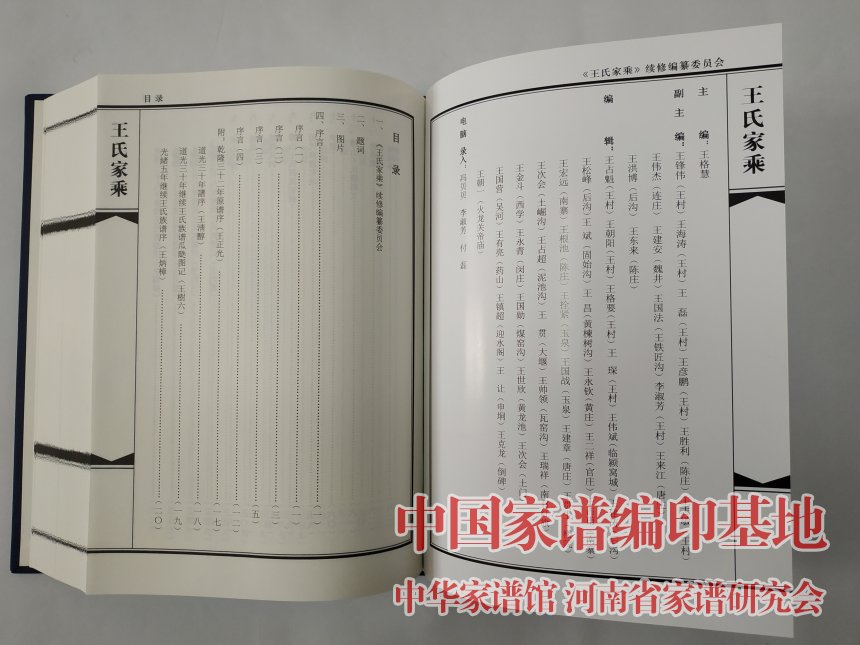 《王氏家乘》续修编纂委员会
王氏家乘
主　编：王格慧
副主编：王锋伟（王村）王海涛（王村）王　磊（王村）王彦鹏（王村）王胜利（陈庄）王（王村）
王伟杰（连庄）王建安（魏井）王国法（王铁匠沟）李淑芳（王村）王来江（唐
王洪博（后沟）王东来（陈庄）
编　辑：王占魁（王村）王朝阳（王村）王格要（王村）王　琛（王村）王伟斌（临颍窝城）沟）
王松峰（后沟）王　斌（固始沟）王　昌（黄楝树沟）王永钦（黄庄）王二祥（官庄）寨）
王宏远（南寨）王根池（陈庄）王拴紧（玉泉）王国战（玉泉）王建章（唐庄）王
王次会（土崛沟）王占超（泥池沟）王　贯（大堰）王帅领（瓦窑沟）王瑞祥（南
王金斗（西学）王永霄（闵庄）王国勋（煤窑沟）王世欣（黄龙池）王次会（土门
王国营（吴河）王有亮（药山）王镇超（迎水阁）王　让（申垌）王克龙（倒碑）
王朝一（火龙关帝庙）
电脑录入：冯贝贝　李淑芳　付　磊
目录
目　录
一、《王氏家乘》续修编纂委员会
二、题词
三、图片
四、序言……（一）
序言（一）……（一）
序言（二）……（三）
序言（三）……（五）
序言（四）……（一二）
附：乾隆三十一年原谱序（王正光）……（一七）
道光三十年谱序（王清醇）……（一八）
道光三十年继续王氏族谱瓜瓞图记（王樹六）……（一九）
光绪五年继续王氏族谱序（王炳樟）……（二〇）
王氏家乘
中国家谱编印基地
中华家谱馆 河南省家谱研究会